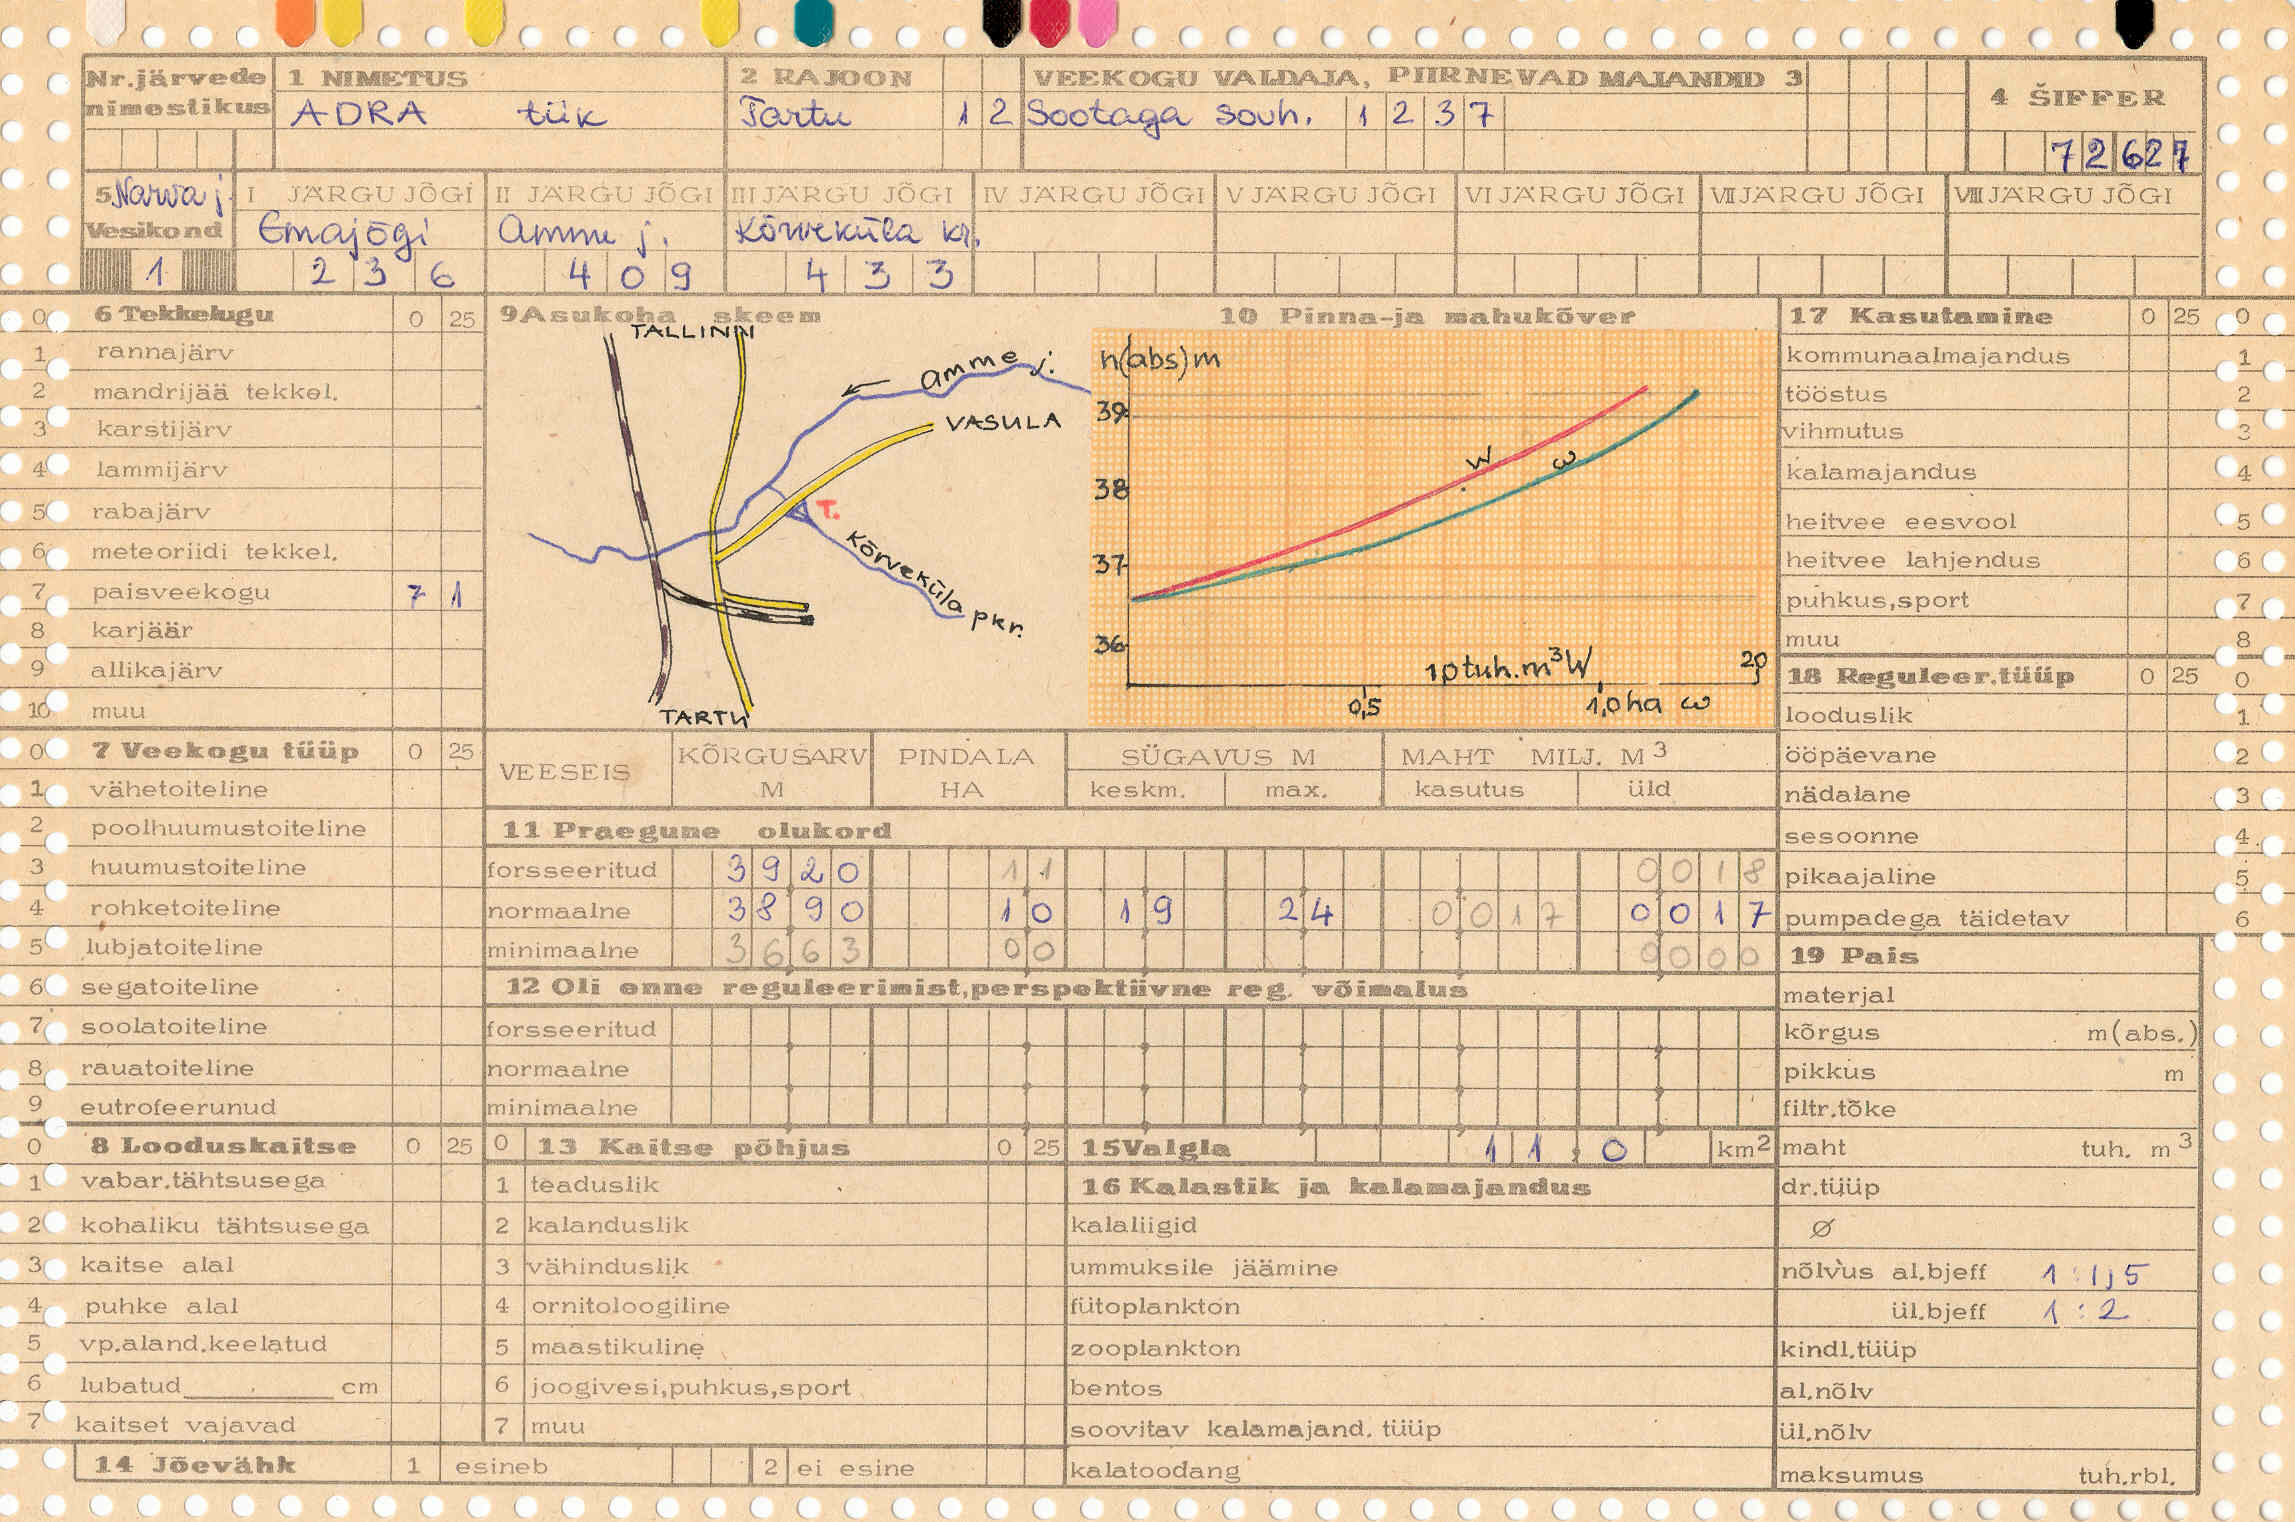 Nr.järvede nimestikus
1 NIMETUS
ADRA tiik
2 RAJOON
Tartu 12
VEEKOGU VALDAJA, PIIRNEVAD MAJANDID 3
Sootaga sovh. 1237
4 ŠIFFER
72627
5 Narva j.
Vesikond
1
I JÄRGU JÕGI
Emajõgi
236
II JÄRGU JÕGI
Amme j.
409
III JÄRGU JÕGI
Kõrveküla kr.
433
IV JÄRGU JÕGI
V JÄRGU JÕGI
VI JÄRGU JÕGI
VII JÄRGU JÕGI
VIII JÄRGU JÕGI
0 6 Tekkelugu 0 25
1 rannajärv
2 mandrijää tekkel.
3 karstijärv
4 lammijärv
5 rabajärv
6 meteoriidi tekkel.
7 paisveekogu 7 1
8 karjäär
9 allikajärv
10 muu
9 Asukoha skeem
TALLINN
Amme j.
VASULA
T.
Kõrveküla pkr.
TARTU
10 Pinna-ja mahukõver
h(abs)m
39
38
37
36
W
ω
10 tuh.m³ W
20
0,5
1,0 ha ω
17 Kasutamine 0 25 0
kommunaalmajandus 1
tööstus 2
vihmutus 3
kalamajandus 4
heitvee eesvool 5
heitvee lahjendus 6
puhkus,sport 7
muu 8
18 Reguleer.tüüp 0 25 0
looduslik 1
ööpäevane 2
nädalane 3
sesoonne 4
pikaajaline 5
pumpadega täidetav 6
0 7 Veekogu tüüp 0 25
1 vähetoiteline
2 poolhuumustoiteline
3 huumustoiteline
4 rohketoiteline
5 lubjatoiteline
6 segatoiteline
7 soolatoiteline
8 rauatoiteline
9 eutrofeerunud
VEESEIS
KÕRGUSARV M
PINDALA HA
SÜGAVUS M
keskm. max.
MAHT MILJ. M³
kasutus üld
11 Praegune olukord
forsseeritud 3920 11 0018
normaalne 3890 10 19 24 0017 0017
minimaalne 3663 00 0000
12 Oli enne reguleerimist,perspektiivne reg. võimalus
forsseeritud
normaalne
minimaalne
19 Pais
materjal
kõrgus m(abs.)
pikkus m
filtr.tõke
maht tuh. m³
dr.tüüp
Ø
nõlvus al.bjeff 1:1,5
ül.bjeff 1:2
kindl.tüüp
al.nõlv
ül.nõlv
maksumus tuh.rbl.
0 8 Looduskaitse 0 25
1 vabar.tähtsusega
2 kohaliku tähtsusega
3 kaitse alal
4 puhke alal
5 vp.aland.keelatud
6 lubatud cm
7 kaitset vajavad
0 13 Kaitse põhjus 0 25
1 teaduslik
2 kalanduslik
3 vähinduslik
4 ornitoloogiline
5 maastikuline
6 joogivesi,puhkus,sport
7 muu
15 Valgla 11,0 km²
16 Kalastik ja kalamajandus
kalaliigid
ummuksile jäämine
fütoplankton
zooplankton
bentos
soovitav kalamajand. tüüp
kalatoodang
14 Jõevähk 1 esineb 2 ei esine